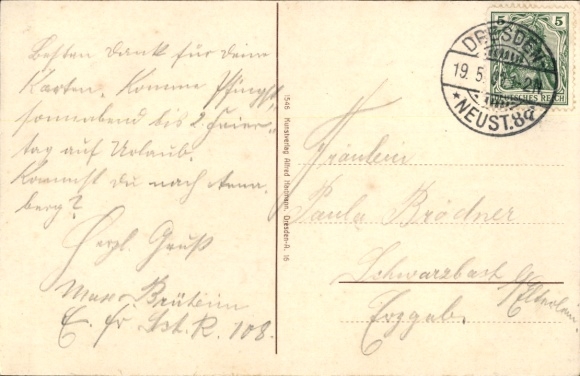 Besten Dank für deine
Karten. Komme Pfingst-
sonnenbend bis 2 Feier-
tag auf Urlaub.
Kommst du nach Anna-
berg?
Herzl. Gruß
Max
E. fr Lst. R. 108.
1546 Kunstverlag Alfred Hartmann, Dresden-A. 16
5 5
DEUTSCHES REICH
DRESDEN
19. 5.
* NEUST. 8
Fräulein
Paula Brödner
Schwarzbach
Erzgeb.